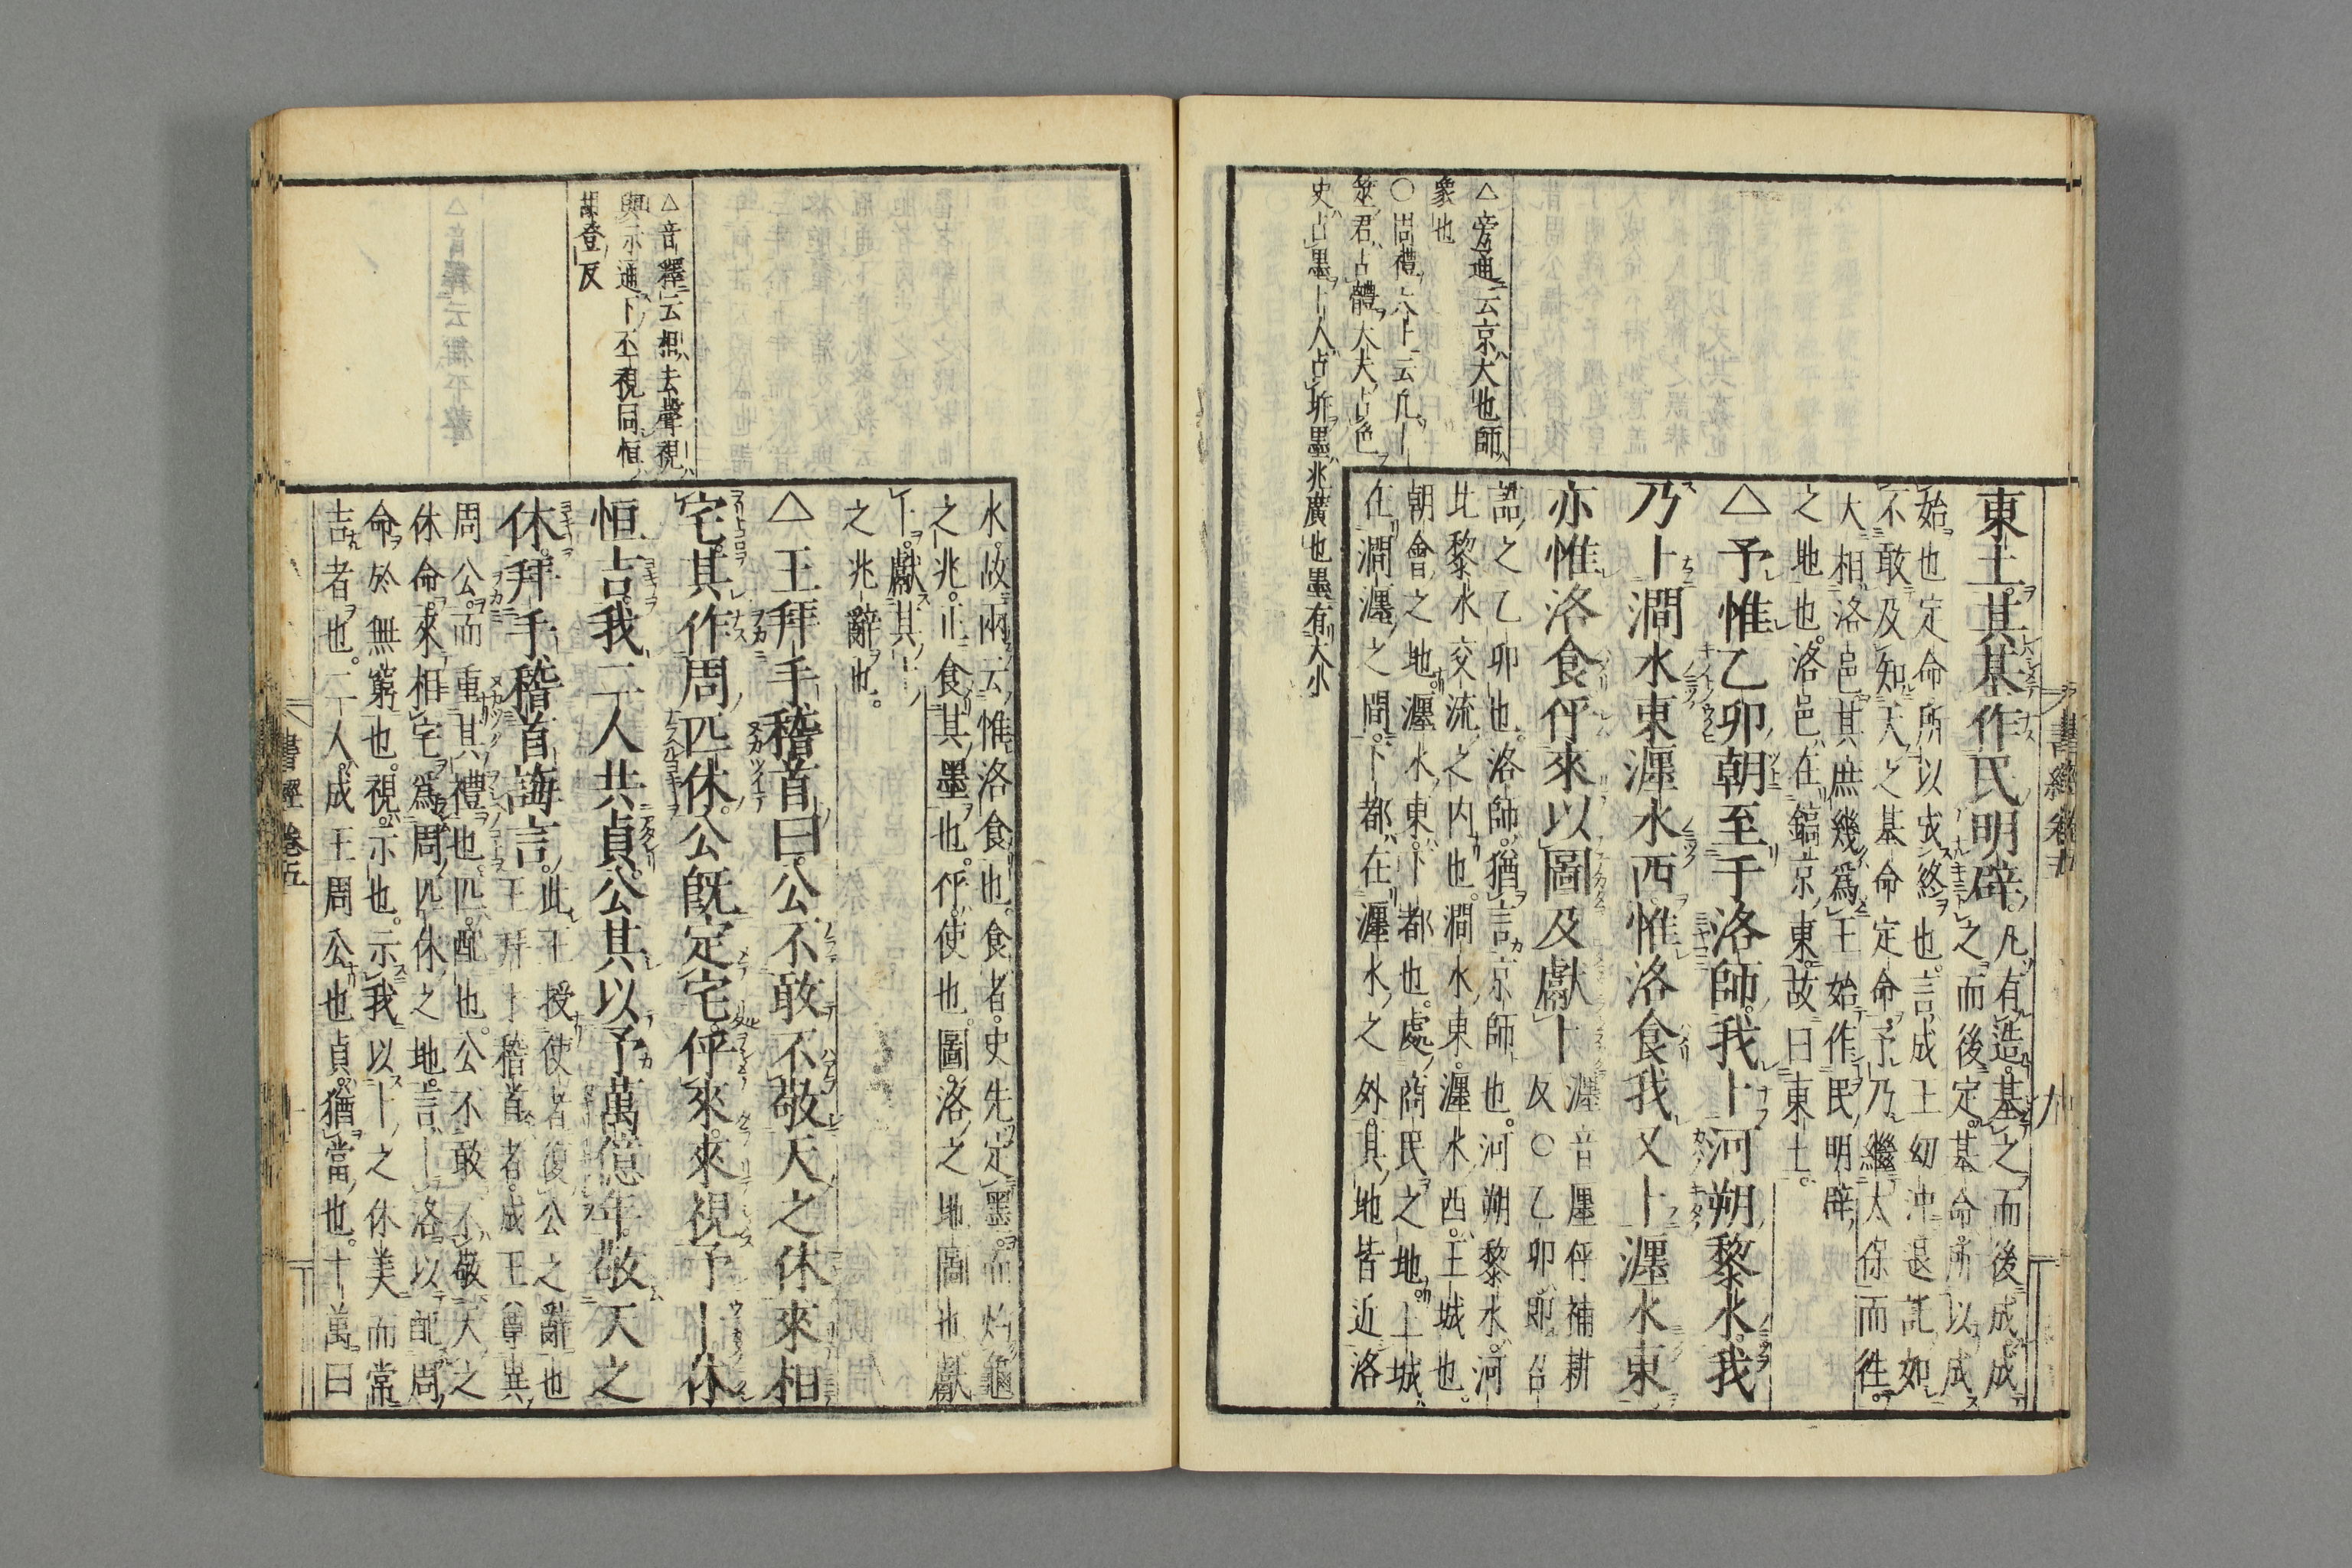 △旁通云京大也師
象也
○周禮六十云凡卜
筮君占體大夫占色
史占墨卜人占坼墨兆廣也墨有大小
書經卷五
九
東土其基作民明辟凡有造基之而後成成
之而後定基命所以成
始也定命所以成終也言成王幼沖退託如
不敢及知天之基命定命予乃繼太保而往
大相洛邑其庶幾爲王始作民明辟
之地也洛邑在鎬京東故曰東土
△予惟乙卯朝至于洛師我卜河朔黎水我
乃卜澗水東瀍水西惟洛食我又卜瀍水東
亦惟洛食伻來以圖及獻卜
瀍音廛伻補耕
反○乙卯即召
誥之乙卯也洛師猶言京師也河朔黎水河
北黎水交流之内也澗水東瀍水西王城也
朝會之地瀍水東下都也處商民之地王城
在澗瀍之間下都在瀍水之外其地皆近洛
△音釋云相去聲視
與示通下丕視同恒
胡登反
水故兩云惟洛食也食者史先定墨而灼龜
之兆正食其墨也伻使也圖洛之地圖也獻
卜獻其卜
之兆辭也
△王拜手稽首曰公不敢不敬天之休來相
宅其作周匹休公既定宅伻來來視予卜休
恒吉我二人共貞公其以予萬億年敬天之
休拜手稽首誨言
此王授使者復公之辭也
王拜手稽首者成王尊異
周公而重其禮也匹配也公不敢不敬天之
休命來相宅爲周匹休之地言卜洛以配周
命於無窮也視示也示我以卜之休美而常
吉者也二人成王周公也貞猶當也十萬曰
書經卷五